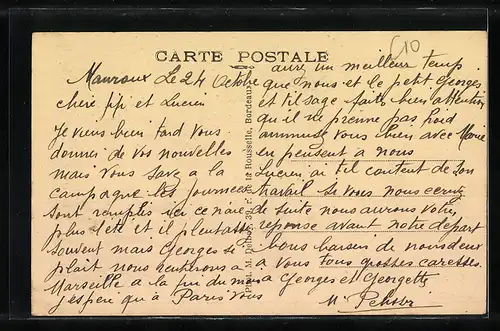 C10
CARTE POSTALE
Mauroux Le 24 Octobre
chère fifi et Lucien
Je viens bien tard vous
donner de vos nouvelles
mais vous save a la
campagne les journees
sont remplis ici ce n'aie
plus l'été et il pleut assé
souvent mais Georges si
plait nous rentrerons a
Marseille a la fin du mois
j'espère qu'a Paris vous
aurez un meilleur temp
que nous et le petit Georges
et til sage faite bien attention
qu'il ne prenne pas froid
ammusé vous bien avec Marie
en pensent a nous
Lucien ai til content de son
travail si vous nous ecrivez
de suite nous aurons votre
reponse avant notre depart
bons baisers de nous deux
a vous tous grosses caresses
a Georges et Georgette
Phot. 39, r. de la Rousselle, Bordeaux